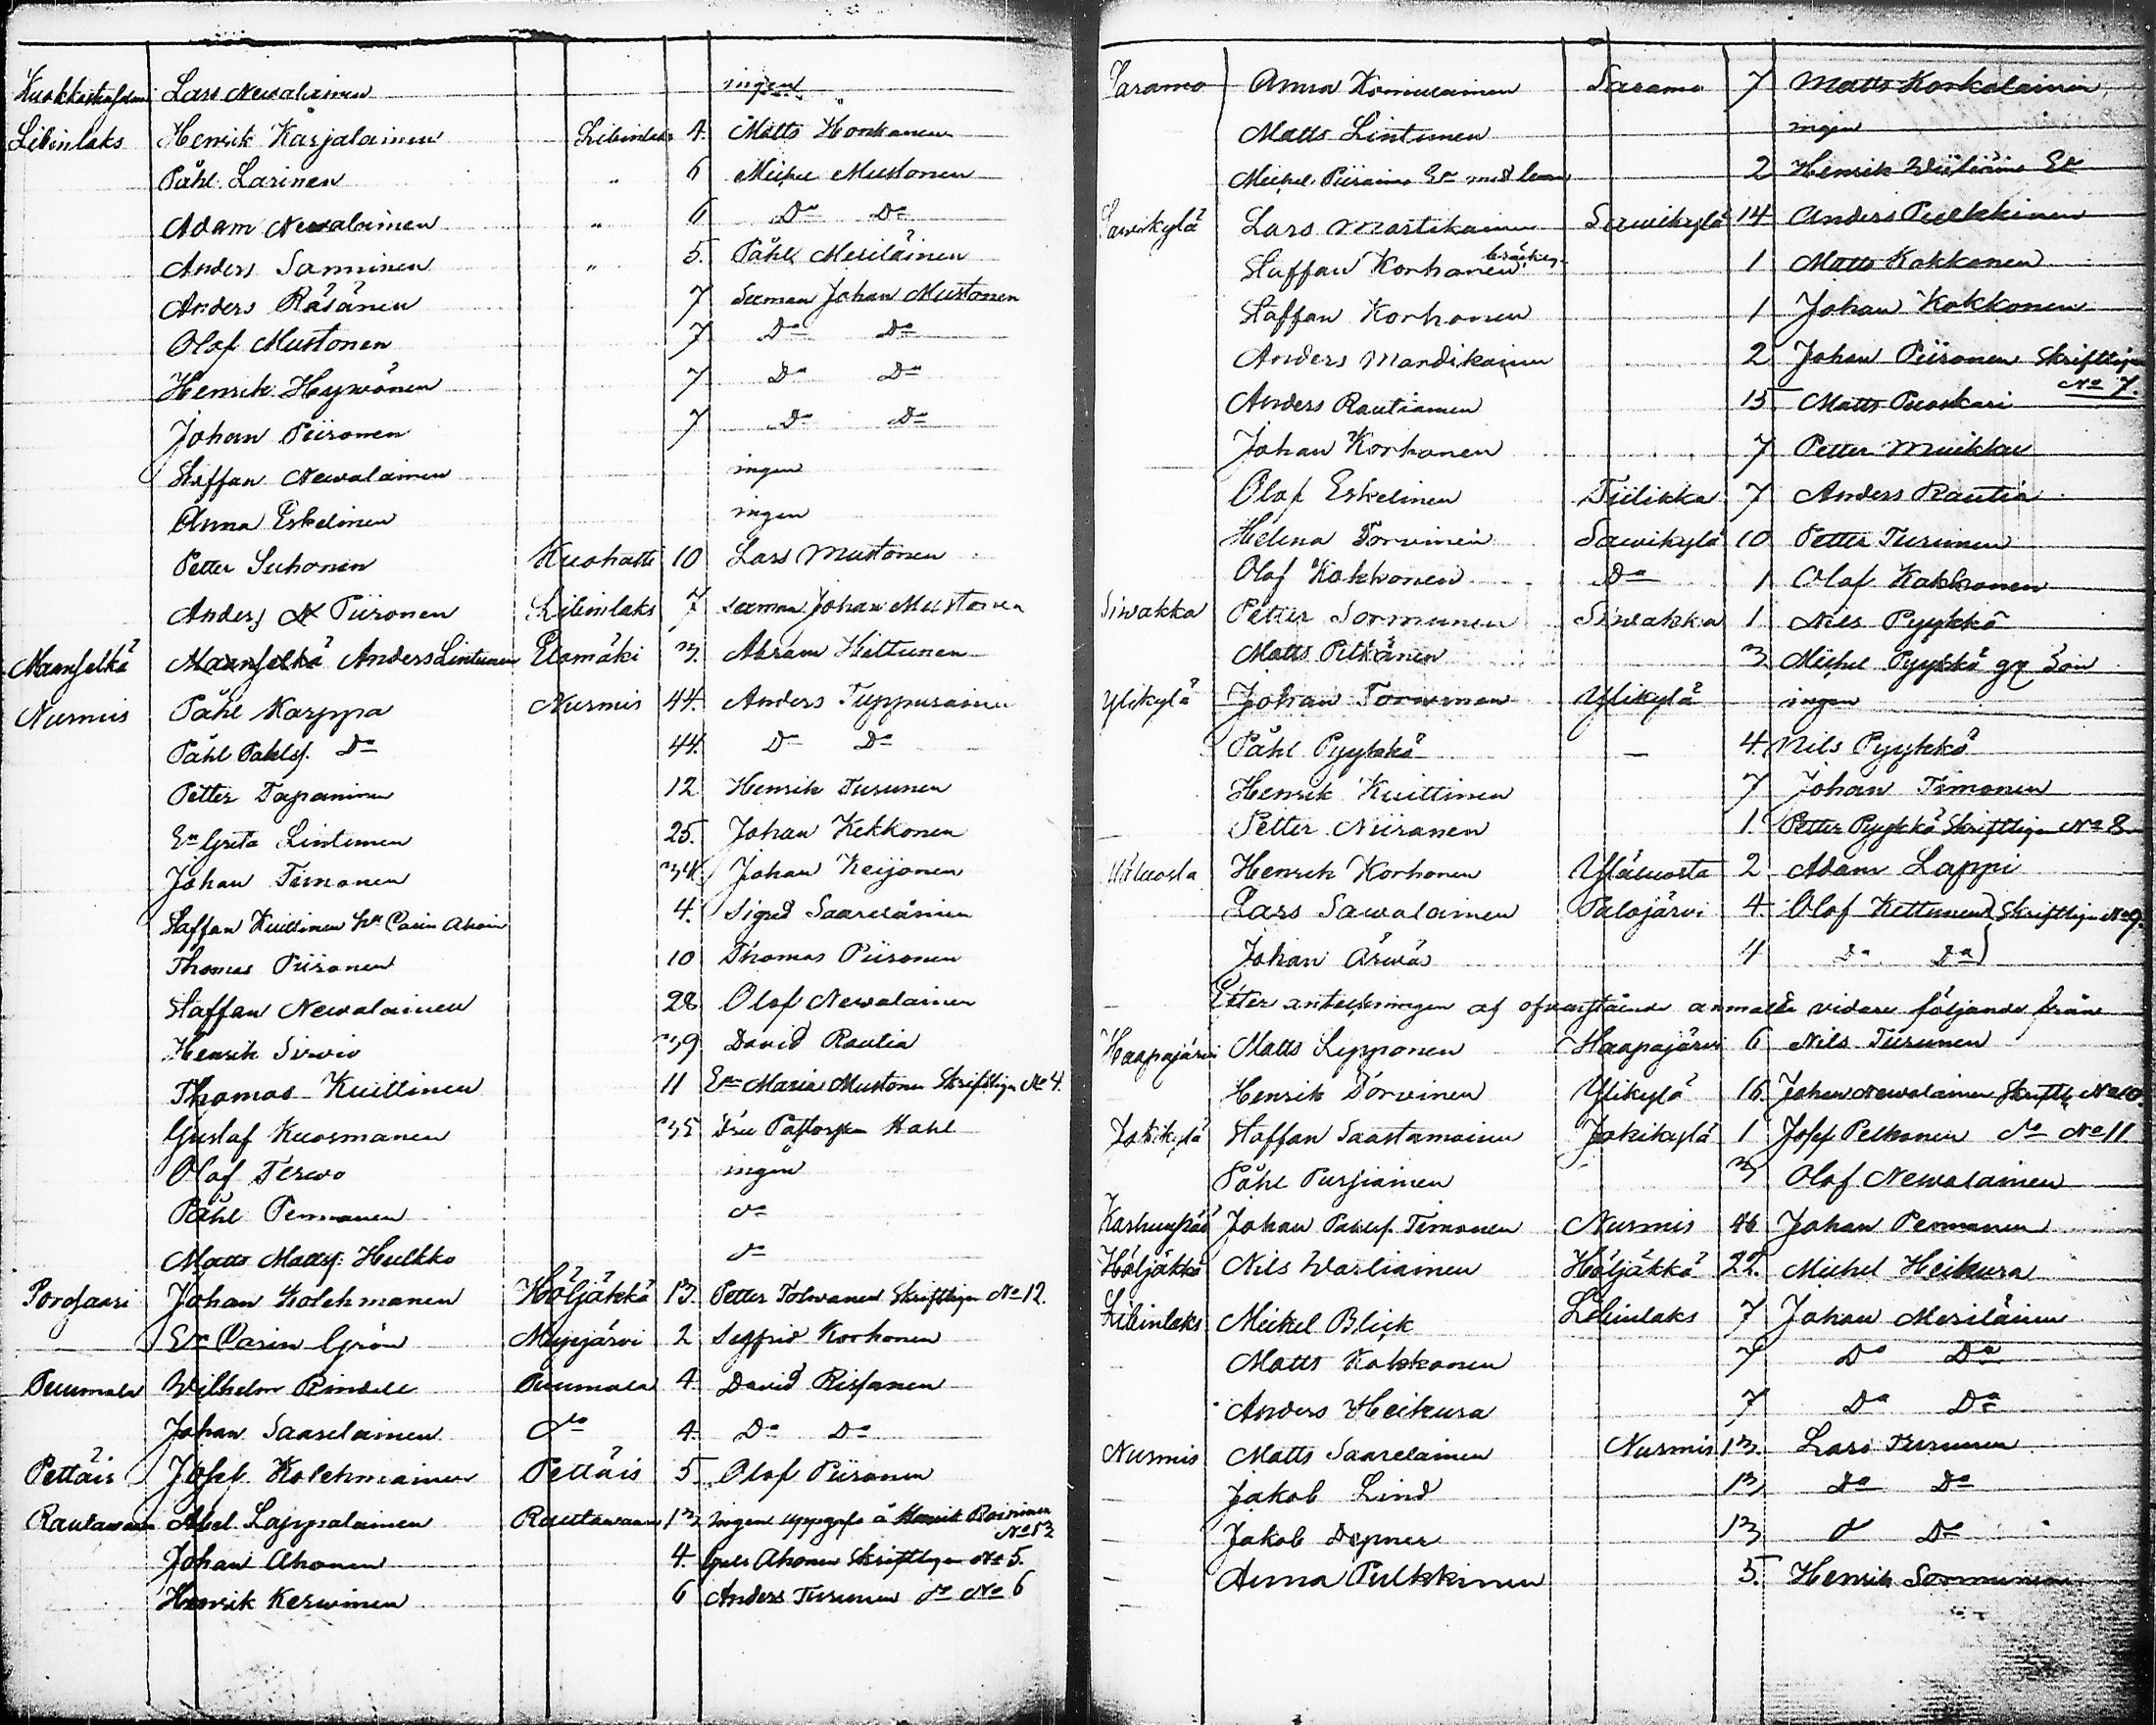 Lars Newalainen ingen
Libinlaks Henrik Karjalainen Libinlaks 4. Matts Honkanen
Påhl Larinen " 6 Michel Mustonen
Adam Newalainen " 6 Do Do
Anders Sanninen " 5. Påhl Meriläinen
Anders Räsänen " 7 Johan Mustonen
Olof Mustonen 7 Do Do
Henrik Hywönen 7 Do Do
Johan Piironen 7 Do Do
Staffan Newalainen ingen
Anna Eskelinen ingen
Petter Suhonen Kuohatti 10 Lars Mustonen
Anders Piironen Libinlaks 7 Johan Mustonen
Maanselkä Maanselkä Anders Lintunen Elomäki 3. Abram Hiltunen
Nurmis Påhl Karppa Nurmis 44. Anders Tuppurainen
Påhl Pahlsj. Do 44. Do Do
Petter Tapaninen 12 Henrik Turunen
En Greta Lintunen 25. Johan Kekkonen
Johan Timonen 34. Johan Keijonen
Staffan Kuittinen Carin 4. Sigred Saarelainen
Thomas Piironen 10 Thomas Piironen
Staffan Newalainen 28 Olof Newalainen
Henrik Sirviö 39 David Rautia
Thomas Kuittinen 11 En Maria Mustonen Skriftlign No 4.
Gustaf Kuosmanen 35 Kahl
Olof Terwo ingen
Påhl Pennanen do
Matts Mattsj. Hulkko do
Porosaari Johan Kolehmanen Höljäkkä 13. Petter Tolwanen Skriftlign No 12.
En Carin Grön Mujejärvi 2 Segfrid Korhonen
Puumala Wilhelm Rindell Puumala 4. David Risfanen
Johan Saarelainen do 4. Do Do
Pettäis Josef Kolehmainen Pettäis 5. Olof Piironen
Rautawaara Abel Lappalainen Rautawaara 13 ingen uppgefs å Henrik Roininen
No 13
Johan Ahonen 4. Ahonen Skriftlign No 5.
Henrik Kerwinen 6 Anders Turunen do No 6
Saramo Anna Komulainen Saramo 7 Matts Korkalainen
Matts Lintunen ingen
Michel Piirainen En 2 Henrik En
Sawikylä Lars Martikainen Sawikylä 14 Anders Pulkkinen
Staffan Korhonen 1 Matts Kokkonen
Staffan Korhonen 1 Johan Kokkonen
Anders Mandikainen 2 Johan Piironen Skriftlign
No 7.
Anders Rautiainen 15 Matts Puoskari
Johan Korhonen 7 Petter Muikku
Olof Eskelinen Tiilikka 7 Anders Rautia
Helena Torvinen Sawikylä 10 Petter Turunen
Olof Kokkonen Do 1 Olof Kokkonen
Siwakka Petter Sormunen Siwakka 1 Nils Pyykkö
Matts Pitkänen 3 Michel Pyykkö
Ylikylä Johan Torwinen Ylikylä ingen
Påhl Pyykkö — 4. Nils Pyykkö
Henrik Kuittinen 7 Johan Timonen
Petter Niiranen 1. Petter Pyykkö Skriftlign No 8
Henrik Korhonen Yläluosta 2 Adam Lappi
Lars Sawolainen Palojärvi 4. Olof Kettunen Skriftlign No 9.
Johan Ärwäs 4 Do Do
Efter anteckningen af ofvanstående anmälte vidare följande från
Haapajärvi Matts Lipponen Haapajärvi 6 Nils Turunen
Henrik Dorvinen Ylikylä 16. Johan Newalainen Skriftl. No 10.
Jokikylä Staffan Saastamoinen Jokikylä 1 Josef Pelkonen do No 11
Påhl Pursiainen 3 Olof Newalainen
Karhunpää Johan Pahlsj. Timonen Nurmis 46 Johan Pennanen
Höljäkkä Nils Warliainen Höljäkkä 22. Michel Heikura
Libinlaks Mickel Blick Libinlaks 7 Johan Meriläinen
Matts Kokkonen 7 Do Do
Anders Heikura 7 Do Do
Nurmis Matts Saarelainen Nurmis 13. Lars Turunen
Jakob Lind 13 Do Do
Jakob Depner 13 d Do
Anna Pulkkinen 5. Henrik Sormunen